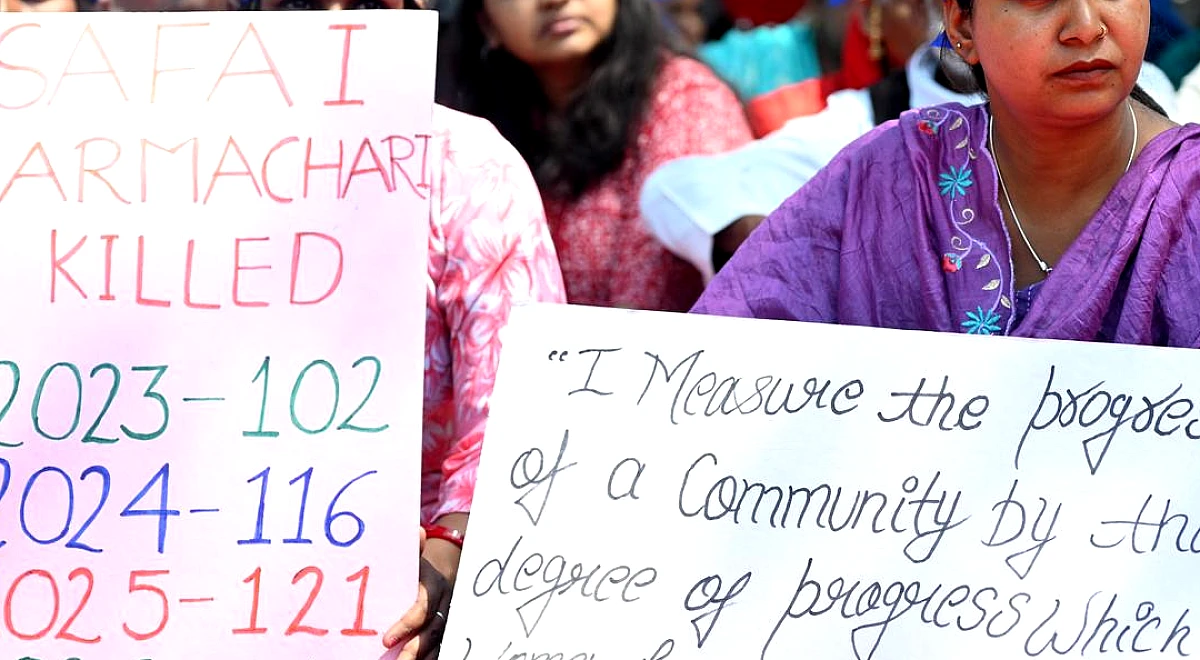 SAFAI
ARMACHARI
KILLED
2023-102
2024-116
2025-121
"I Measure the progres
of a Community by the
degree of progress which